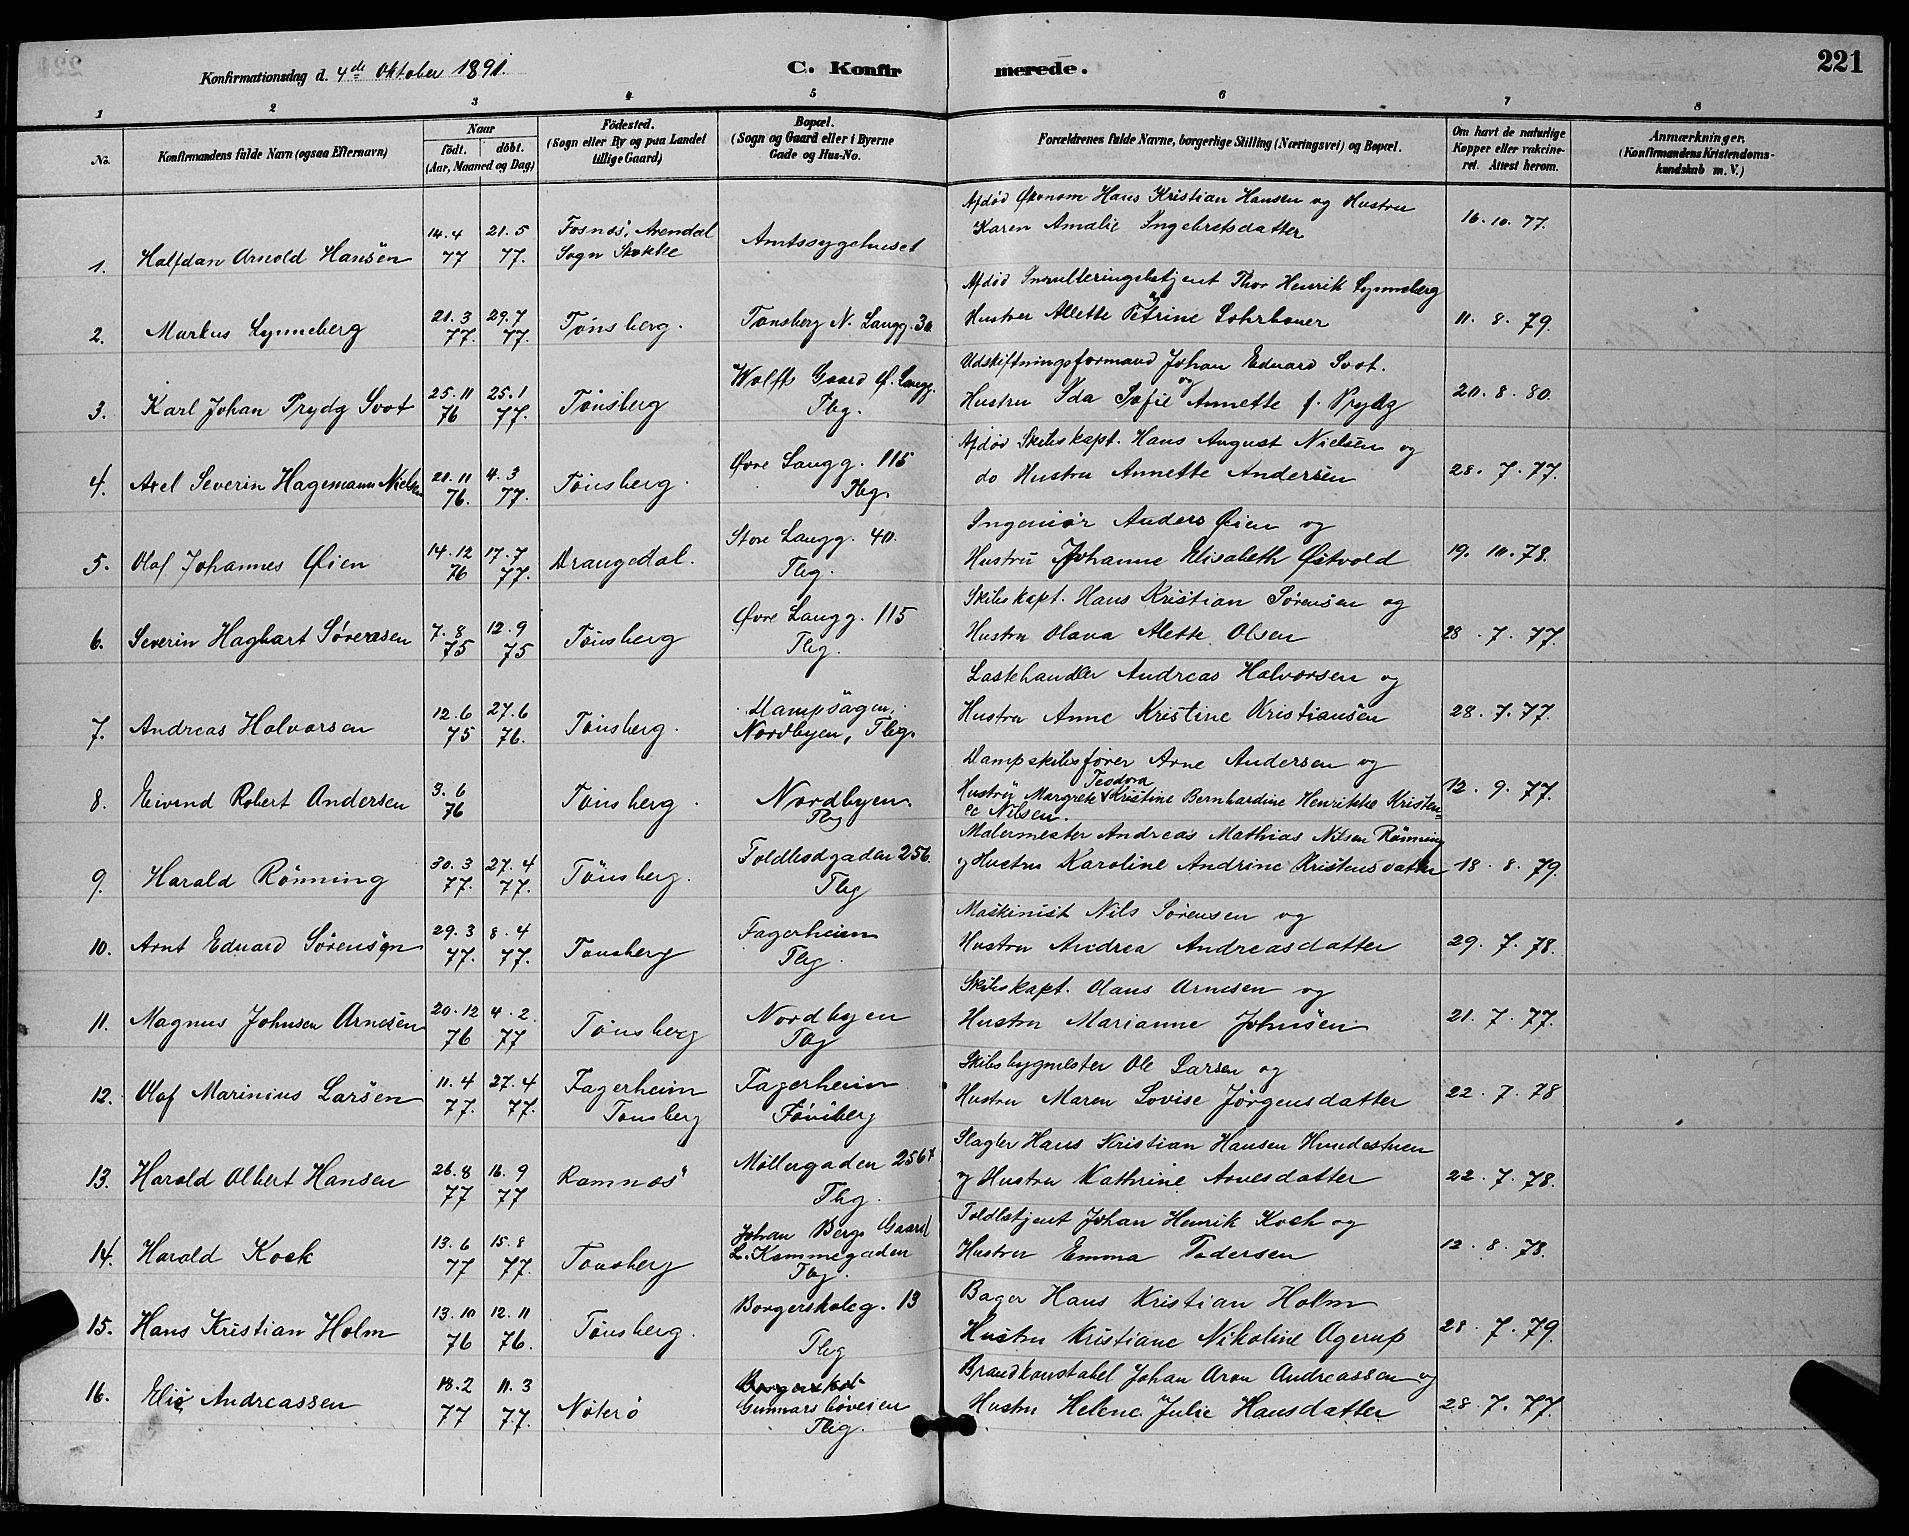 Konfirmationsdag d. 4de Oktober 1891.
C. Konfirmerede.
221
1 2 3 4 5 6 7 8
No.
Konfirmandens fulde Navn (ogsaa Efternavn)
Naar
födt. döbt.
(Aar, Maaned og Dag)
Födested.
(Sogn eller By og paa Landet
tillige Gaard)
Bopæl.
(Sogn og Gaard eller i Byerne
Gade og Hus-No.
Forældrenes fulde Navne, borgerlige Stilling (Næringsvei) og Bopæl.
Om havt de naturlige
Kopper eller vakcine-
ret. Attest herom.
Anmærkninger,
(Konfirmandens Kristendoms-
kundskab m. V.)
1. Halfdan Arnold Hansen
14.4 77
21.5 77.
Fosnes, Arendal
Sogn Stokke
Amtssygehuset
Afdød Økonom Hans Kristian Hansen og Hustru
Karen Amalie Ingebretsdatter
16.10.77.
2. Markus Lynneberg
21.3 77.
29.7 77.
Tønsberg.
Tønsberg N. Langg. 30
Afdød Inrulleringsbetjent Thor Henrik Lynneberg
og
Hustru Allette Petrine Lohrbauer
11.8.79.
3. Karl Johan Prydg Svot
25.11 76
25.1 77.
Tønsberg
Wolfts Gaard Ø. Langg.
Tbg.
Udskiftningsformand Johan Eduard Svot.
og
Hustru Ida Sofie Annette f. Prydg
20.8.80.
4. Axel Severin Hagemann Nielsen
20.11 76.
4.3 77.
Tønsberg.
Øvre Langg. 115
Tbg.
Afdød Skibskapt. Hans August Nielsen og
do Hustru Annette Andersen
28.7.77.
5. Olaf Johannes Øien
14.12 76
17.7 77.
Drangedal.
Store Langg. 40.
Tbg.
Ingeniør Anders Øien og
Hustru Johanne Elisabeth Østvold
19.10.78.
6. Severin Hagbart Sørensen
7.8 75
12.9 75
Tønsberg
Øvre Langg. 115
Tbg.
Skibskapt. Hans Kristian Sørensen og
Hustru Olava Alette Olsen
28.7.77.
7. Andreas Halvorsen
12.6 75
27.6 76.
Tønsberg.
Dampsagen,
Nordbyen, Tbg.
Lastehandler Andreas Halvorsen og
Hustru Anne Kristine Kristiansen
28.7.77.
8. Eivind Robert Andersen
3.6 76
Tønsberg.
Nordbyen
Tbg
Dampskibsfører Arne Andersen og
Teodora
Hustru Margrete Kristine Bernhardine Henrikke Kristen-
ce Nilsen.
12.9.77.
9. Harald Rønning
30.3 77.
27.4 77.
Tønsberg.
Toldbodgaden 256.
Tbg
Malermester Andreas Mathias Nilsen Rønning
og Hustru Karoline Andrine Kristensdatter
18.8.79.
10. Arnt Eduard Sørensen
29.3 77.
8.4 77.
Tønsberg
Fagerheim
Tbg.
Maskinist Nils Sørensen og
Hustru Andrea Andreasdatter
29.7.78.
11. Magnus Johnsen Arnesen
20.12 76
4.2 77
Tønsberg
Nordbyen
Tbg
Skibskapt. Olaus Arnesen og
Hustru Marianne Johnsen
21.7.77.
12. Olaf Marinius Larsen
11.4 77.
27.4 77.
Fagerheim
Tønsberg
Fagerheim
Tønsberg
Skibsbygmester Ole Larsen og
Hustru Maren Lovise Jørgensdatter
22.7.78
13. Harald Albert Hansen
26.8 77
16.9 77
Ramnes
Møllergaden 256
Tbg.
Slagter Hans Kristian Hansen Hundestuen
og Hustru Kathrine Arnesdatter
22.7.78.
14. Harald Koch
13.6 77
15.8 77.
Tønsberg
Johan Bergs Gaard
L. Kammegaden
Tbg.
Toldbetjent Johan Henrik Koch og
Hustru Emma Pedersen
12.8.78.
15. Hans Kristian Holm
13.10 76
12.11 76.
Tønsberg.
Borgerskoleg. 13
Tbg
Bager Hans Kristian Holm
Hustru Kristiane Nikoline Agerup
28.7.79.
16. Elis Andreassen
18.2 77
11.3 77.
Nøterø
Borgerskol
Gunnarsbøveien
Tbg.
Brandkonstabel Johan Aron Andreassen og
Hustru Helene Julie Hansdatter
28.7.77.